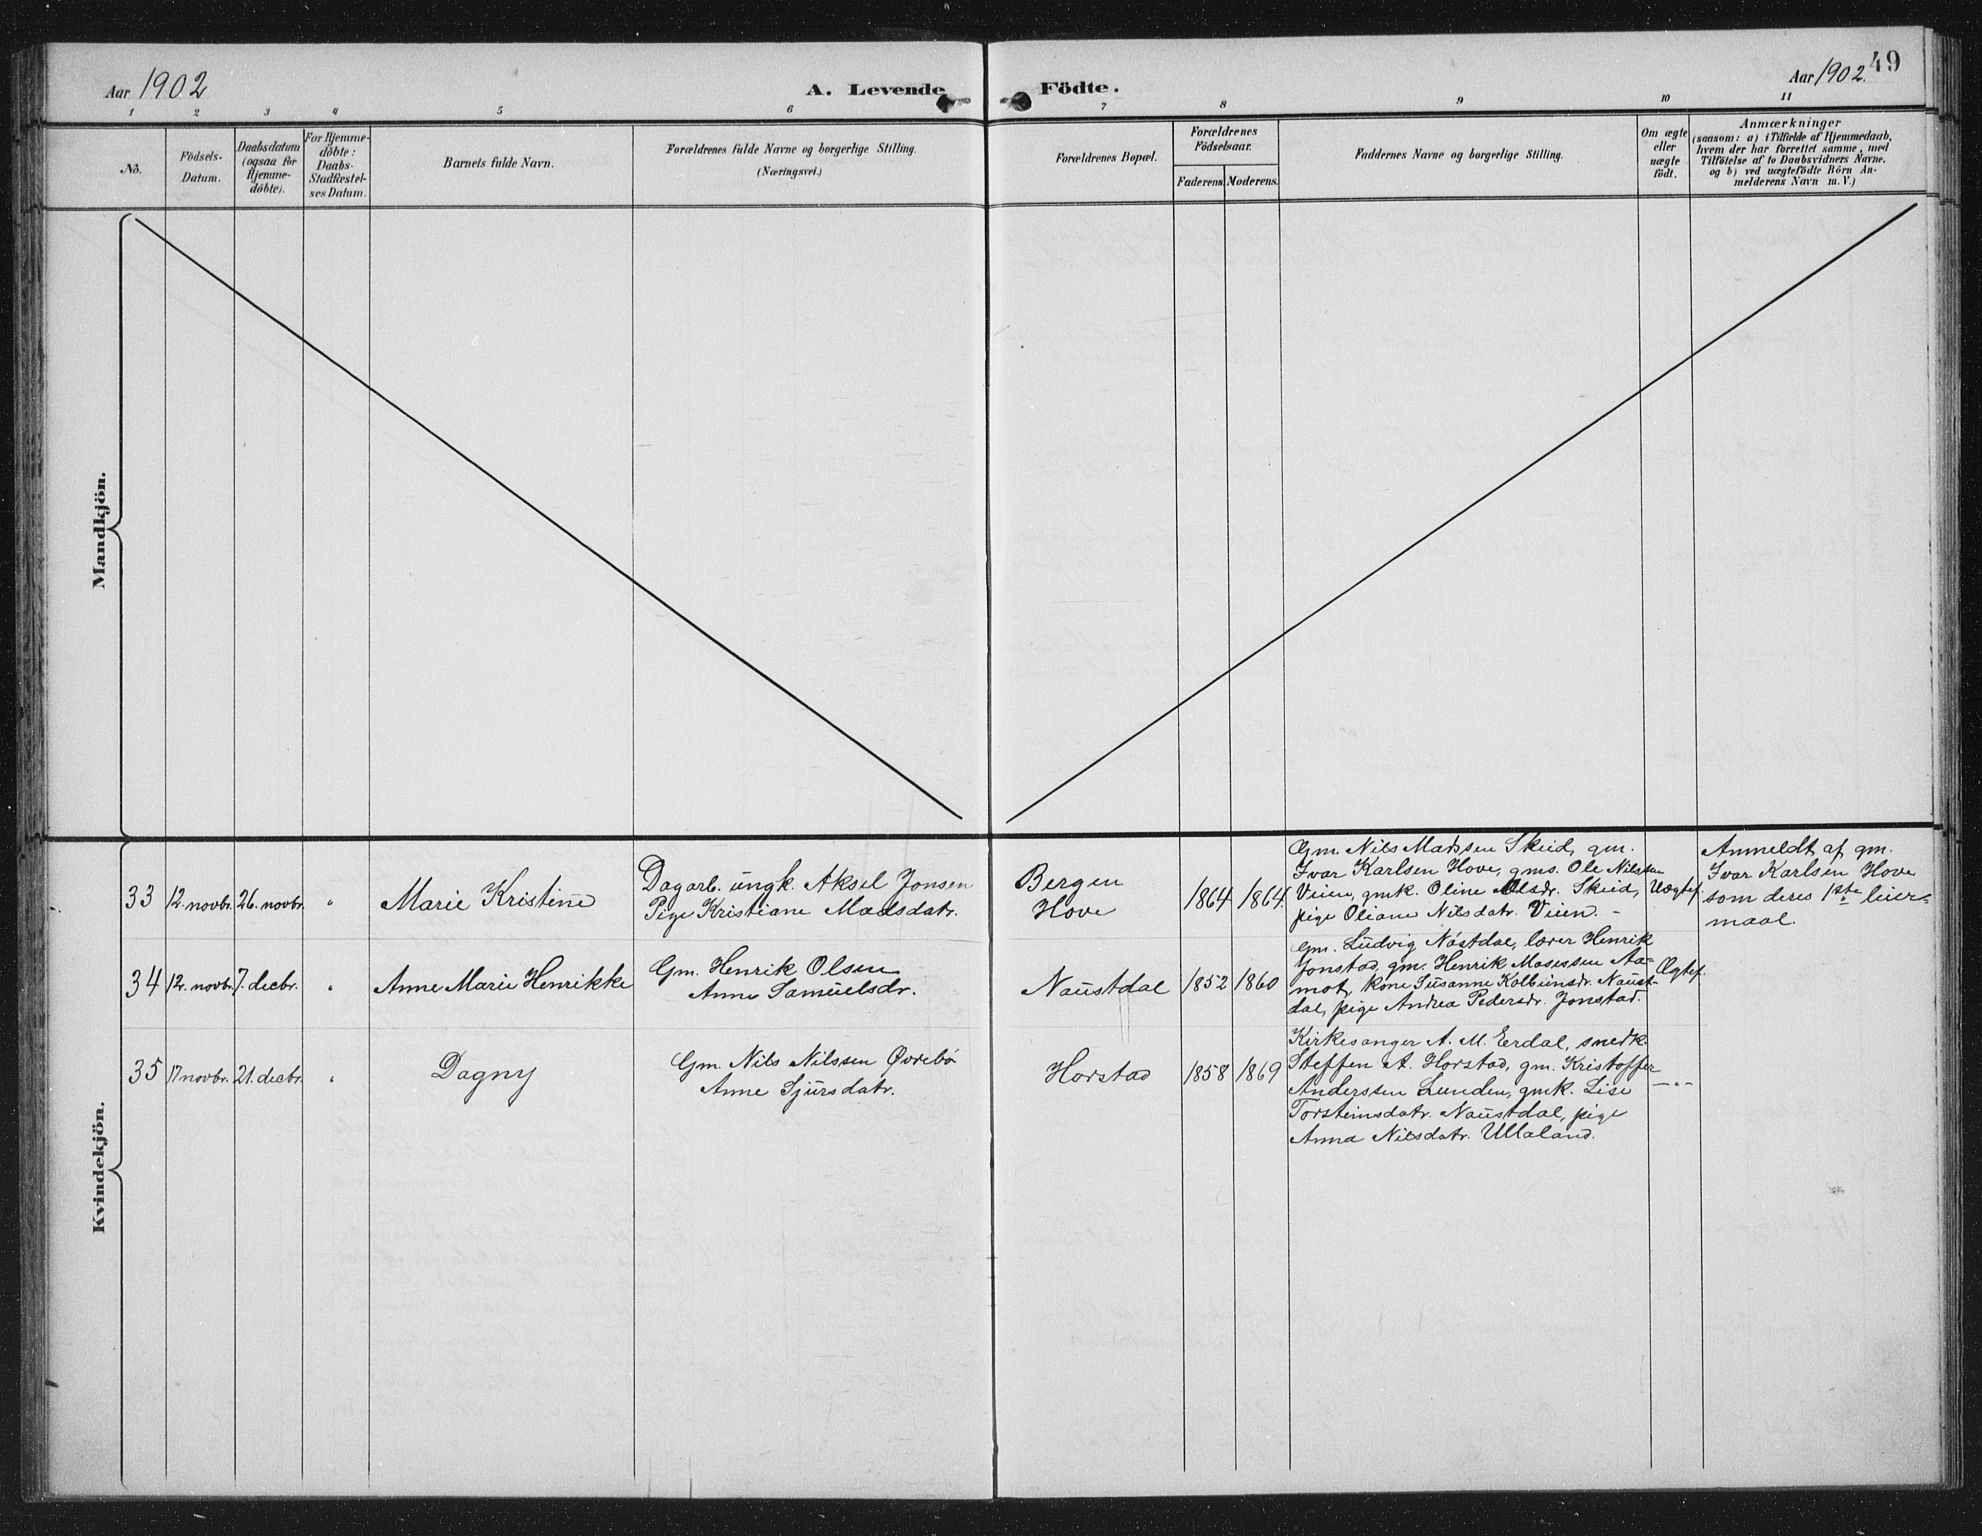 Aar 1902
A. Levende
Födte.
Aar 1902.
49
1 2 3 4 5 6 7 8 9 10 11
No.
Födsels-
Datum.
Daabsdatum
(ogsaa for
Hjemme-
döbte).
For Hjemme-
döbte:
Daabs-
Stadfæstel-
ses Datum.
Barnets fulde Navn.
Forældrenes fulde Navne og borgerlige Stilling.
(Næringsvei.)
Forældrenes Bopæl.
Forældrenes
Födselsaar.
Faderens.
Moderens.
Faddernes Navne og borgerlige Stilling.
Om ægte
eller
uægte
födt.
Anmærkninger
(saasom: a) i Tilfælde af Hjemmedaab,
hvem der har forrettet samme, med
Tilföielse af to Daabsvidners Navne.
og b) ved uægtefödte Börn An-
melderens Navn m. V.)
Mandkjön.
Kvindekjön.
33
12. novbr.
26. novbr.
"
Marie Kristine
Dagarb. ungk. Aksel Jonsen
Pige Kristiane Madsdatr.
Bergen
Hove
1864
1864.
Gm. Nils Madssen Skeid, gm.
Ivar Karlsen Hove, gms. Ole Nilssen
Veien, gmk. Oline Olsdr. Skeid,
pige Oliane Nilsdatr. Veien. -
Uægtef.
Anmeldt af gm.
Ivar Karlsen Hove
som deres 1ste leier-
maal.
34
12. novbr.
7. decbr.
"
Anne Marie Henrikke
Gm. Henrik Olsen
Anne Samuelsdr.
Naustdal
1852
1860
Gm. Ludvig Nöstdal, lærer Henrik
Jonstad, gm. Henrik Mosessen Aa-
mot, kone Susanne Kolbeinsdr. Naust-
dal, pige Andrea Pedersdr. Jonstad.
Ægtef.
35
17 novbr.
21. decbr.
"
Dagny
Gm. Nils Nilssen Övrebö
Anne Sjursdatr.
Horstad
1858
1869
Kirkesanger A. M. Erdal, snedk.
Steffen A. Horstad, gm. Kristoffer
Anderssen Lunden, gmk. Lise
Torsteinsdatr. Naustdal, pige
Anna Nilsdatr. Ullaland.
—"—